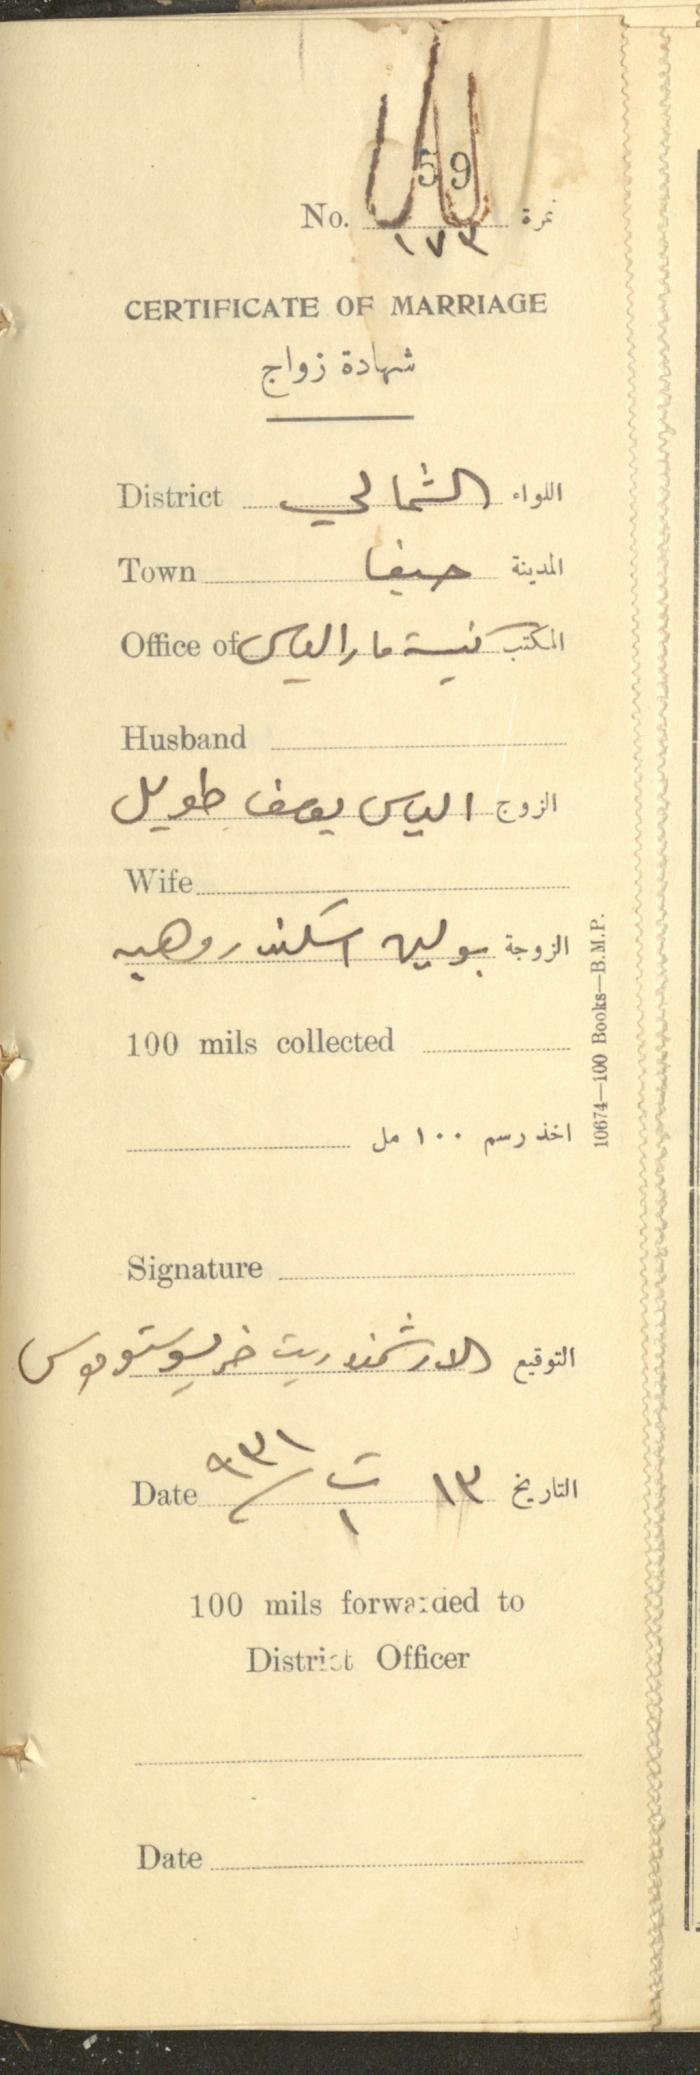 59
No. نمرة
١٧٣
CERTIFICATE OF MARRIAGE
شهادة زواج
District الشمالي اللواء
Town حيفا المدينة
Office of كنيسة مار الياس المكتب
Husband
الزوج الياس يوسف طويل
Wife
الزوجة بولين اسكندر وهبه
100 mils collected
اخذ رسم ١٠٠ مل
10674—100 Books—B.M.P.
Signature
التوقيع الارشمندريت
Date ١٣ ت١ / ٩٣١ التاريخ
100 mils forwarded to
District Officer
Date